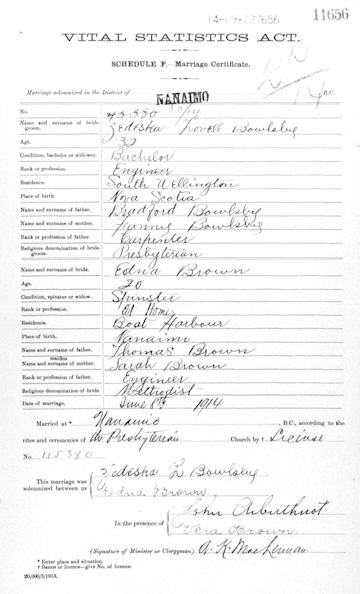 14-09-027656
11656
VITAL STATISTICS ACT.
SCHEDULE F.—Marriage Certificate.
Marriage solemnized in the District of NANAIMO B.C.
No. 45380 30/14
Name and surname of bridegroom. Zedeska Lovell Bowlsby
Age. 32
Condition, bachelor or widower. Bachelor
Rank or profession. Engineer
Residence. South Wellington
Place of birth. Nova Scotia
Name and surname of father. Bradford Bowlsby
Name and surname of mother. Fannie Bowlsby
Rank or profession of father. Carpenter
Religious denomination of bridegroom. Presbyterian
Name and surname of bride. Edna Brown
Age. 20
Condition, spinster or widow. Spinster
Rank or profession. At Home
Residence. Boat Harbour
Place of birth. Nanaimo
Name and surname of father. Thomas Brown
Name and maiden surname of mother. Sarah Brown
Rank or profession of father. Engineer
Religious denomination of bride. Methodist
Date of marriage. June 8th 1914
Married at * Nanaimo , B.C., according to the
rites and ceremonies of the Presbyterian Church by †. License
No 45380
This marriage was solemnized between us
Zedeska L Bowlsby
Edna Brown
In the presence of
John Arbuthnot
Vera Brown
(Signature of Minister or Clergyman). A. K. MacLennan
* Enter place and situation.
† Banns or licence—give No. of licence.
20,000/3/1913.